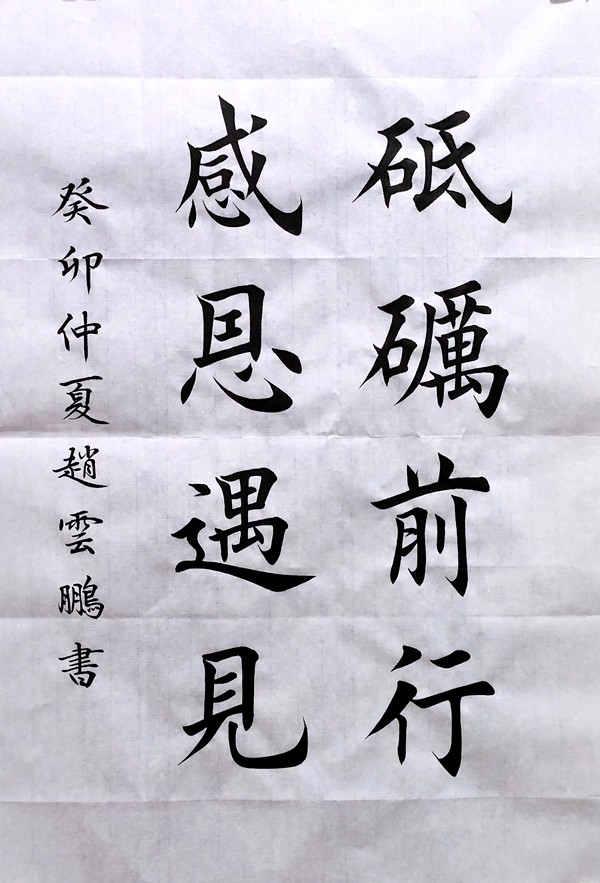 砥礪前行
感恩遇見
癸卯仲夏趙雲鵬書